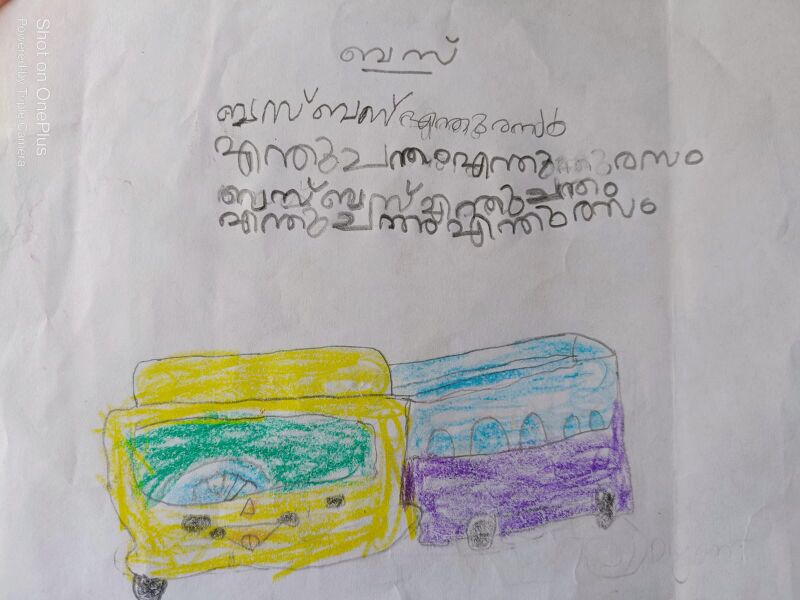 ബസ്
ബസ് ബസ് എന്തു രസം
എന്തു ചന്തം എന്തു രസം
ബസ് ബസ് എന്തു ചന്തം
എന്തു ചന്തം എന്തു രസം
Shot on OnePlus
Powered by Triple Camera